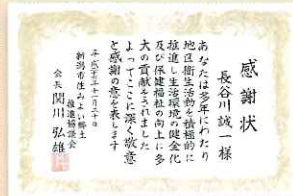 感謝状
長谷川誠一様
あなたは多年にわたり
地区衛生活動を積極的に
推進し生活環境の健全化
及び保健福祉の向上に多
大の貢献をされました
よってここに深く敬意
と感謝の意を表します
平成二十三年十一月二十日
新潟市住みよい郷土
推進協議会
会長 関川弘雄